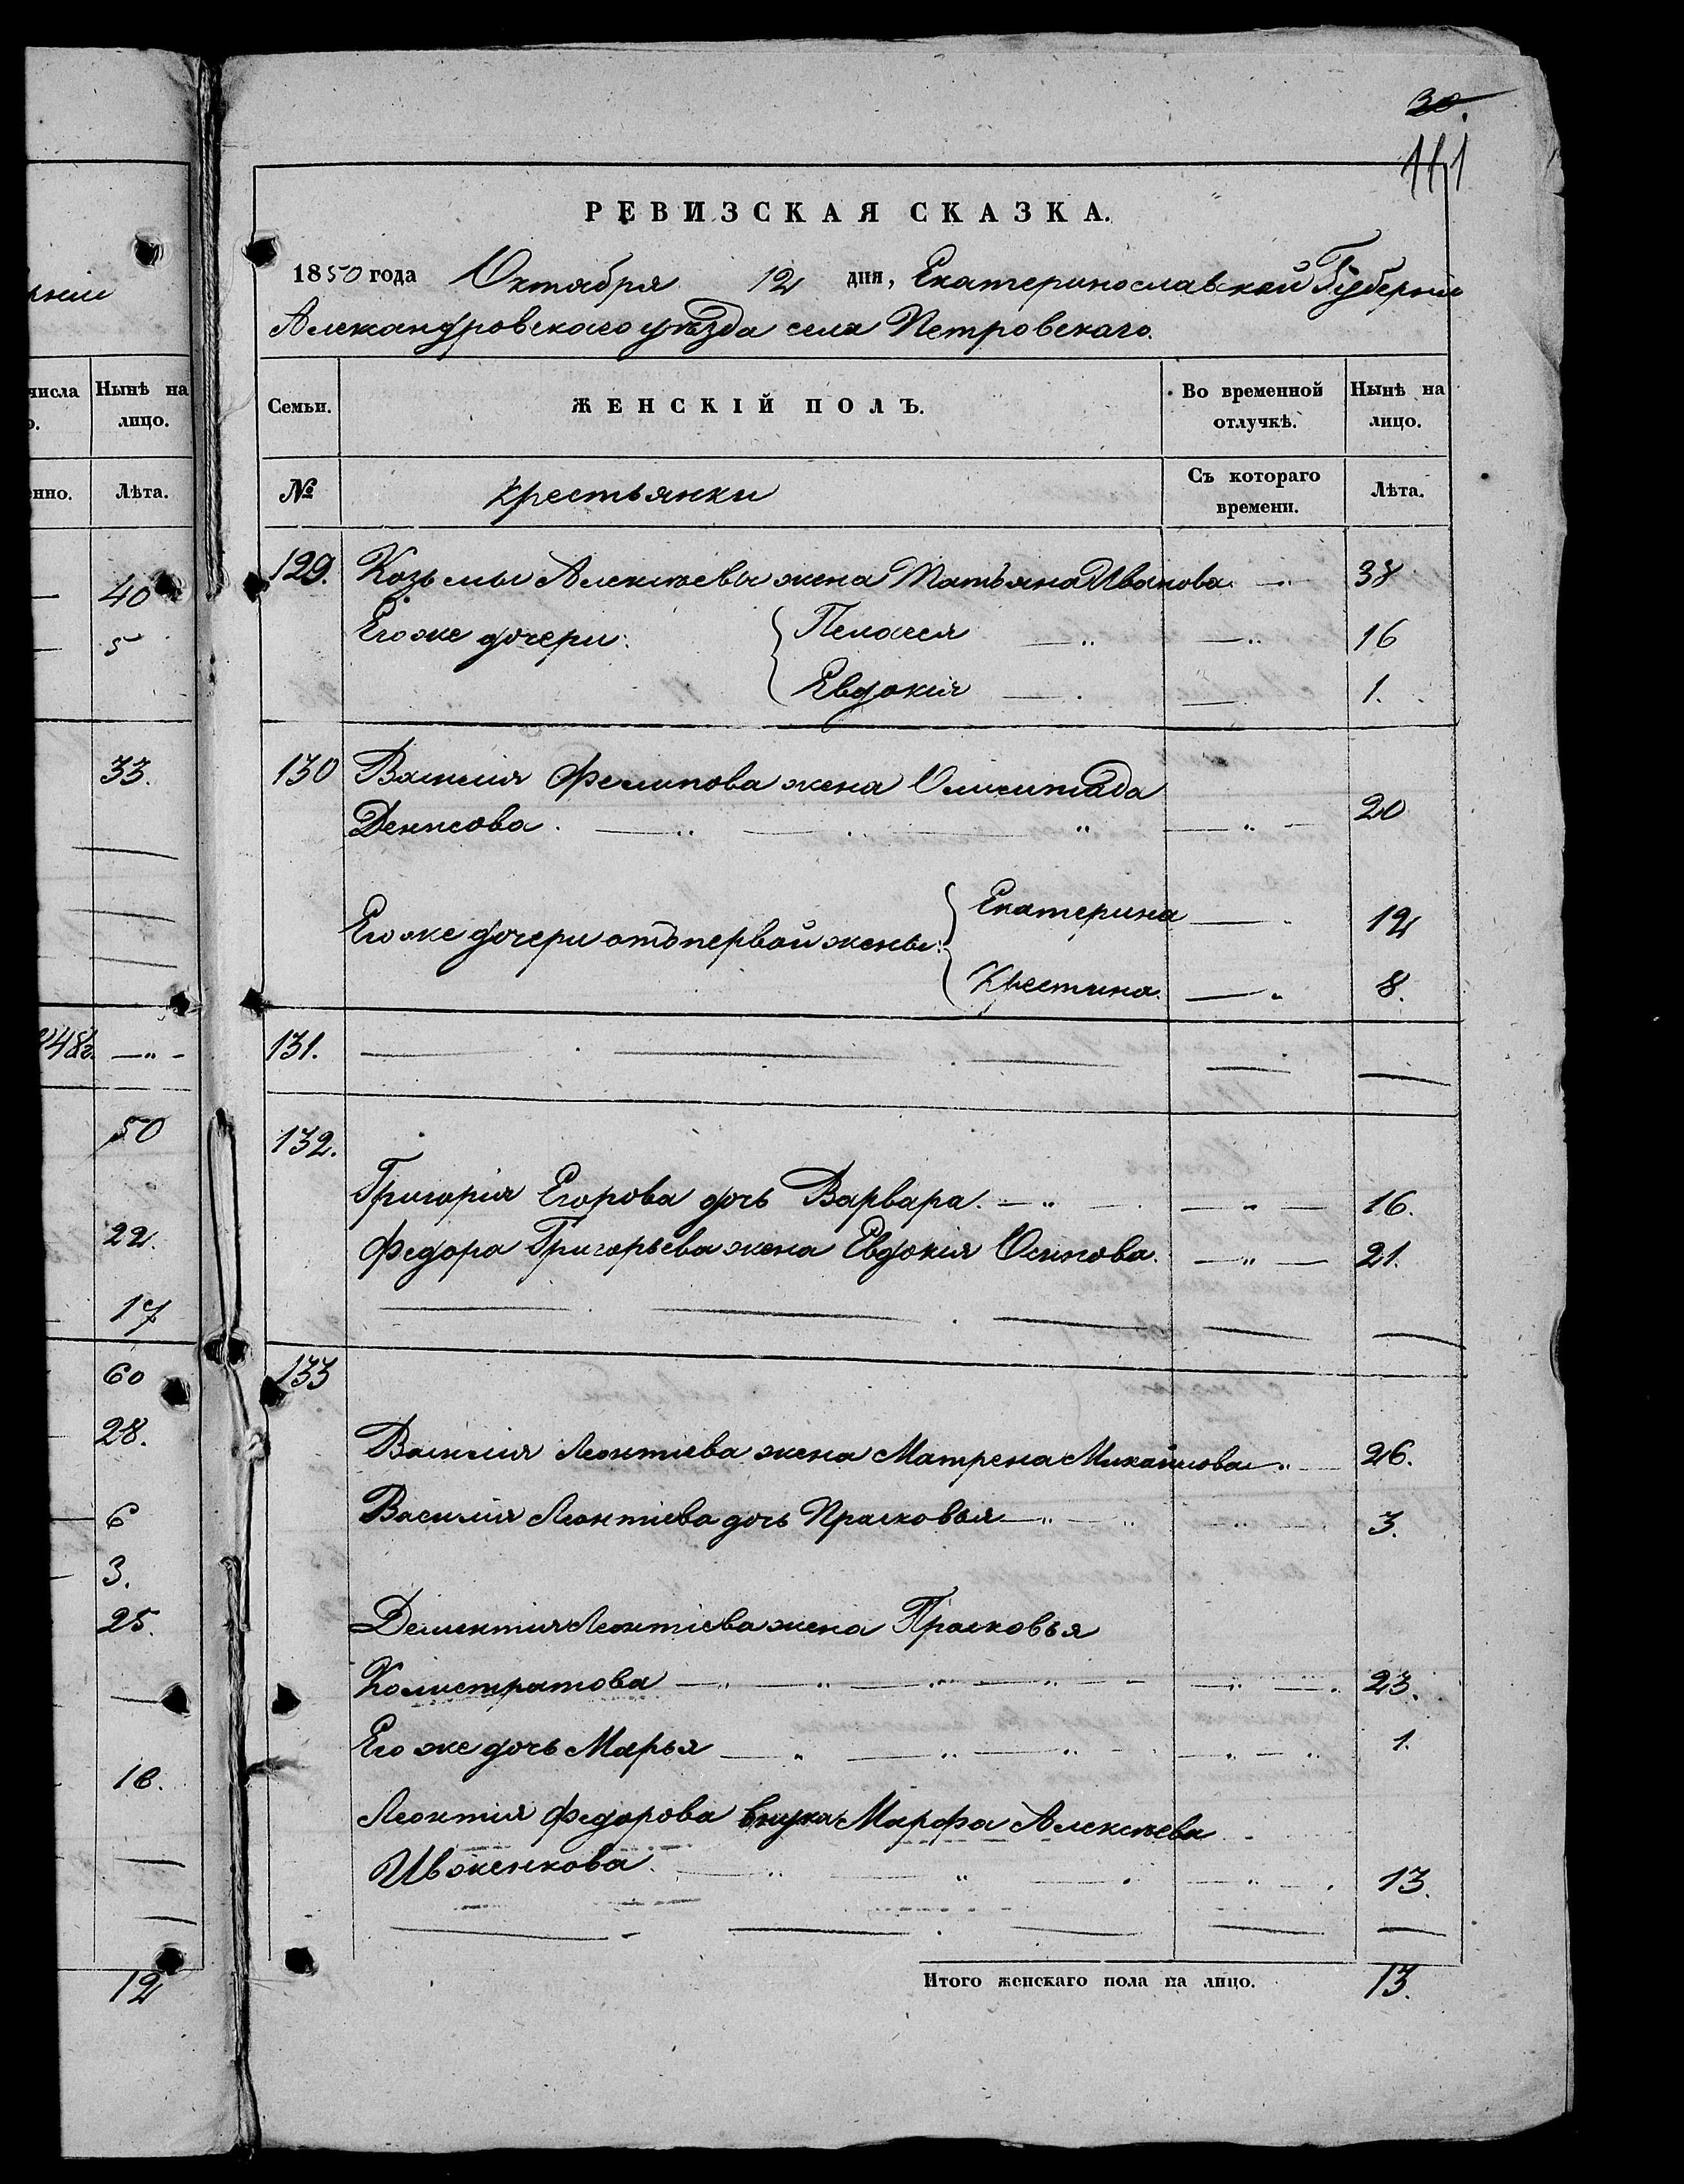 30.
111
РЕВИЗСКАЯ СКАЗКА.
1850 года Октября 12 дня, Екатеринославской Губерніи
Александровскаго уѣзда села Петровскаго.
числа Нынѣ на лицо.
Лѣта.
40
5
33.
50
22.
17
60
28.
6
3.
25.
12
Семьи. ЖЕНСКІЙ ПОЛЪ. Во временной отлучкѣ. Нынѣ на лицо.
№ Крестьянки Съ котораго времени. Лѣта.
129. Козьмы Алексѣевы жена Татьяна Иванова 38
Его же дочери: Пелагея 16
Евдокія 1.
130 Василія Фелипова жена
Денисова. 20
Его же дочери отъ первой жены: Екатерина 12
Крестина. 8.
131.
132.
Григорія Егорова дочь Варвара. 16.
Федора Григорьева жена Евдокія Осипова. 21.
133
Василія Леонтіева жена Матрена Михайлова 26.
Василія Леонтіева дочь Прасковья 3.
Дементія Леонтіева жена Прасковья
Колистратова 23.
Его же дочь Марья 1.
Леонтія Федорова внука Марфа Алексѣева
Ивженкова. 13.
Итого женскаго пола на лицо. 13.